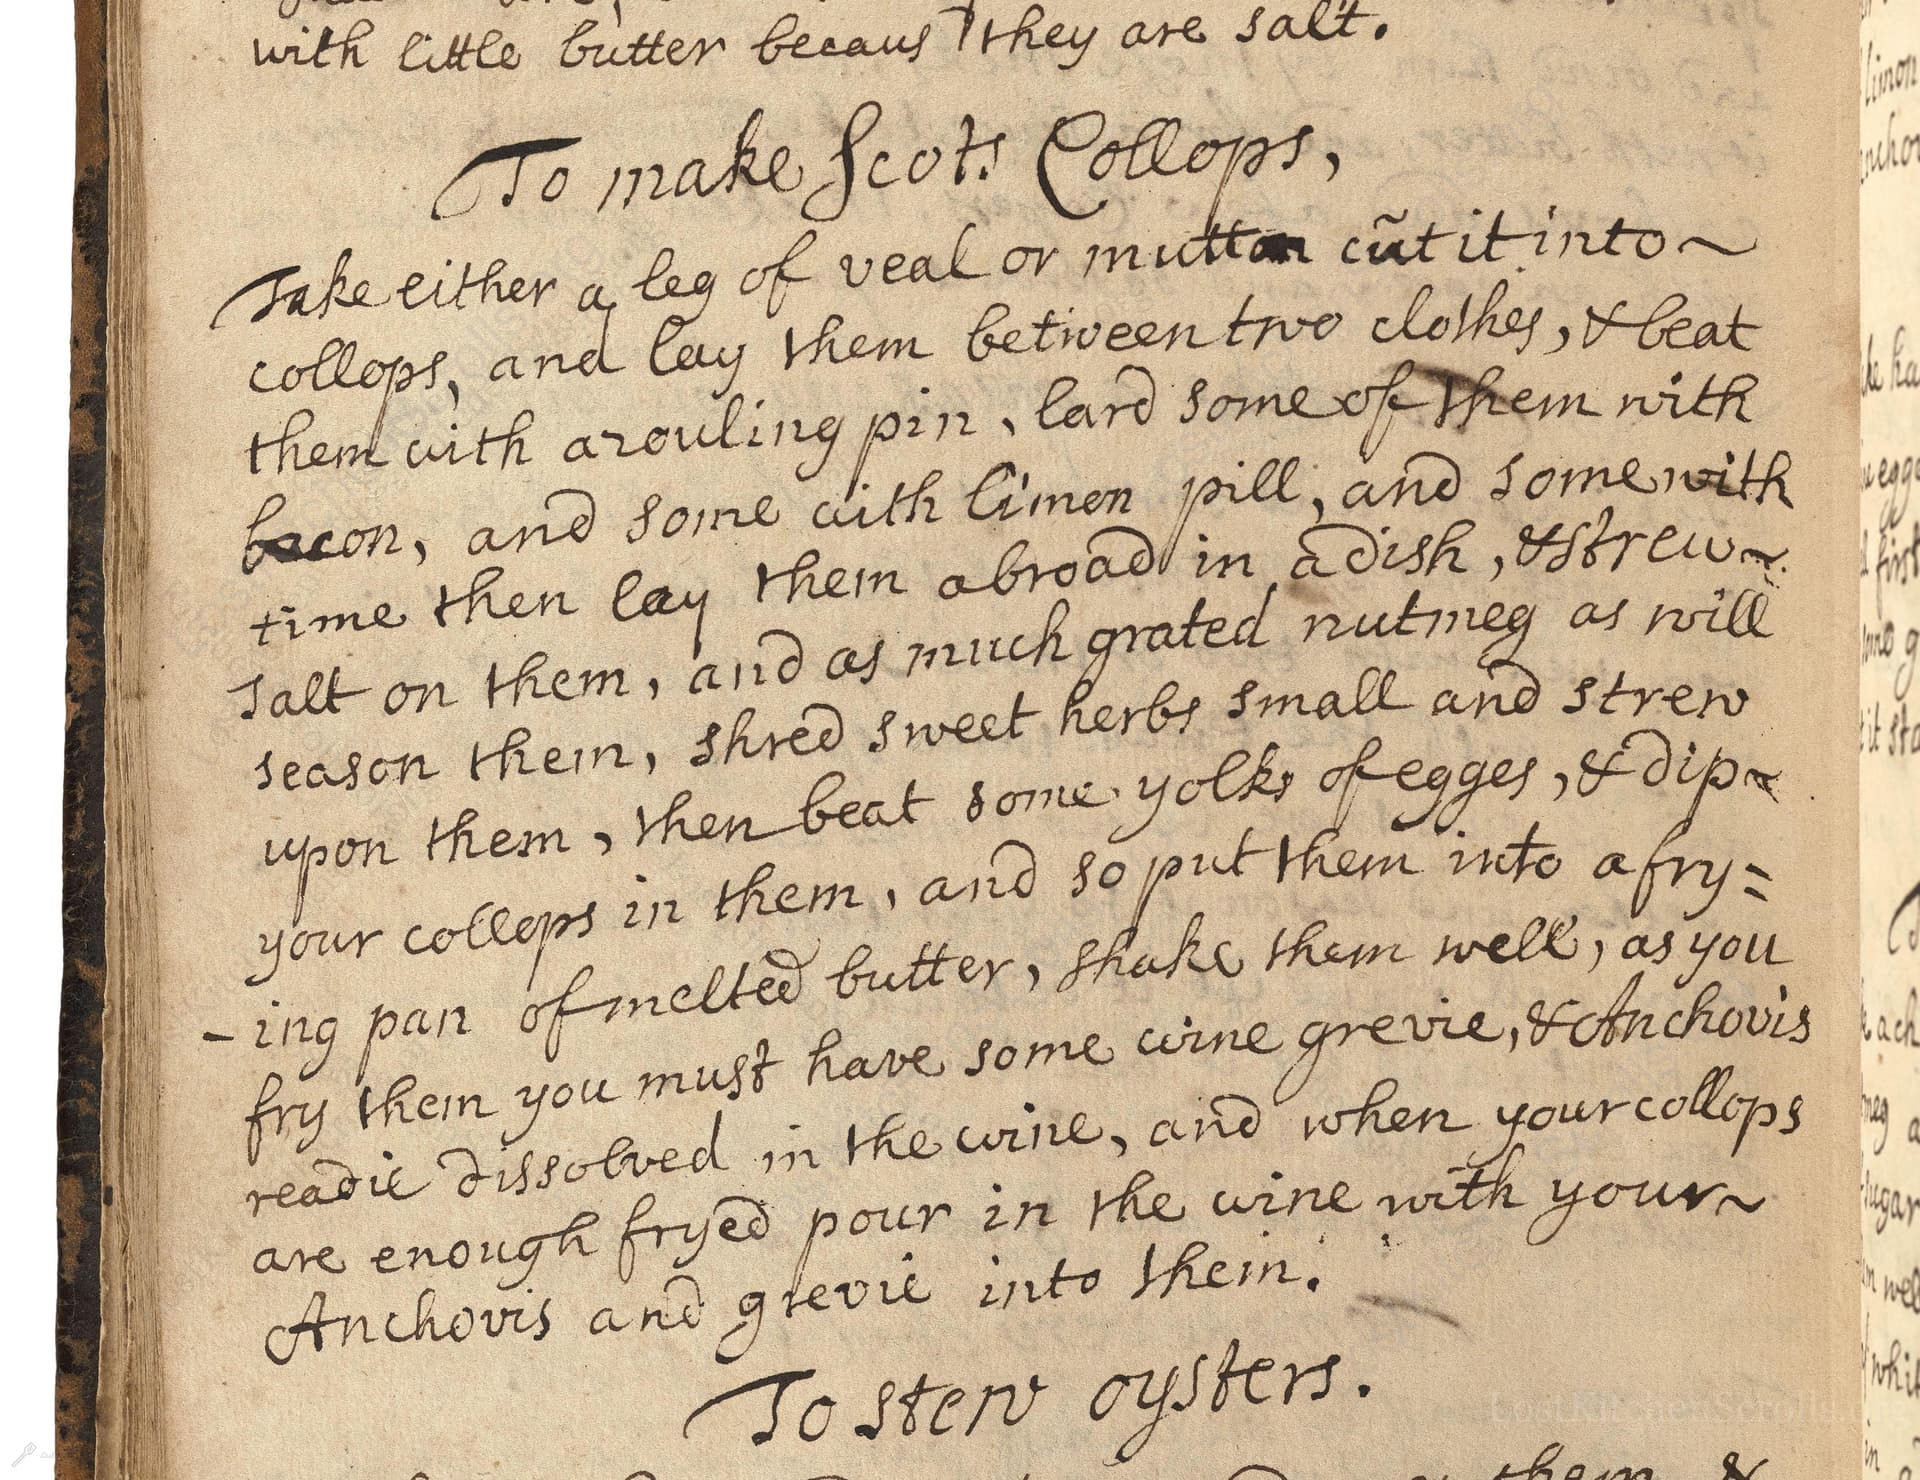 with little butter becaus they are salt.
To make Scots Collops,
Take either a leg of veal or mutton cũt it into ~
collops, and lay them between two clothes, & beat
them with a rouling pin, lard some of them with
bacon, and some with limon pill, and some with
time then lay them abroad in a dish, & strew ~
salt on them, and as much grated nutmeg as will
season them, shred sweet herbs small and strew
upon them, then beat some yolks of egges, & dip ~
your collops in them, and so put them into a fry=
-ing pan of melted butter, shake them well, as you
fry them you must have some wine grevie, & Anchovis
readie dissolved in the wine, and when your collops
are enough fryed pour in the wine with your ~
Anchovis and grevie into them.
To stew oysters.
them &
limon
first
it